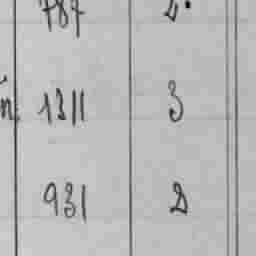 787 2.
1311 3
931 2